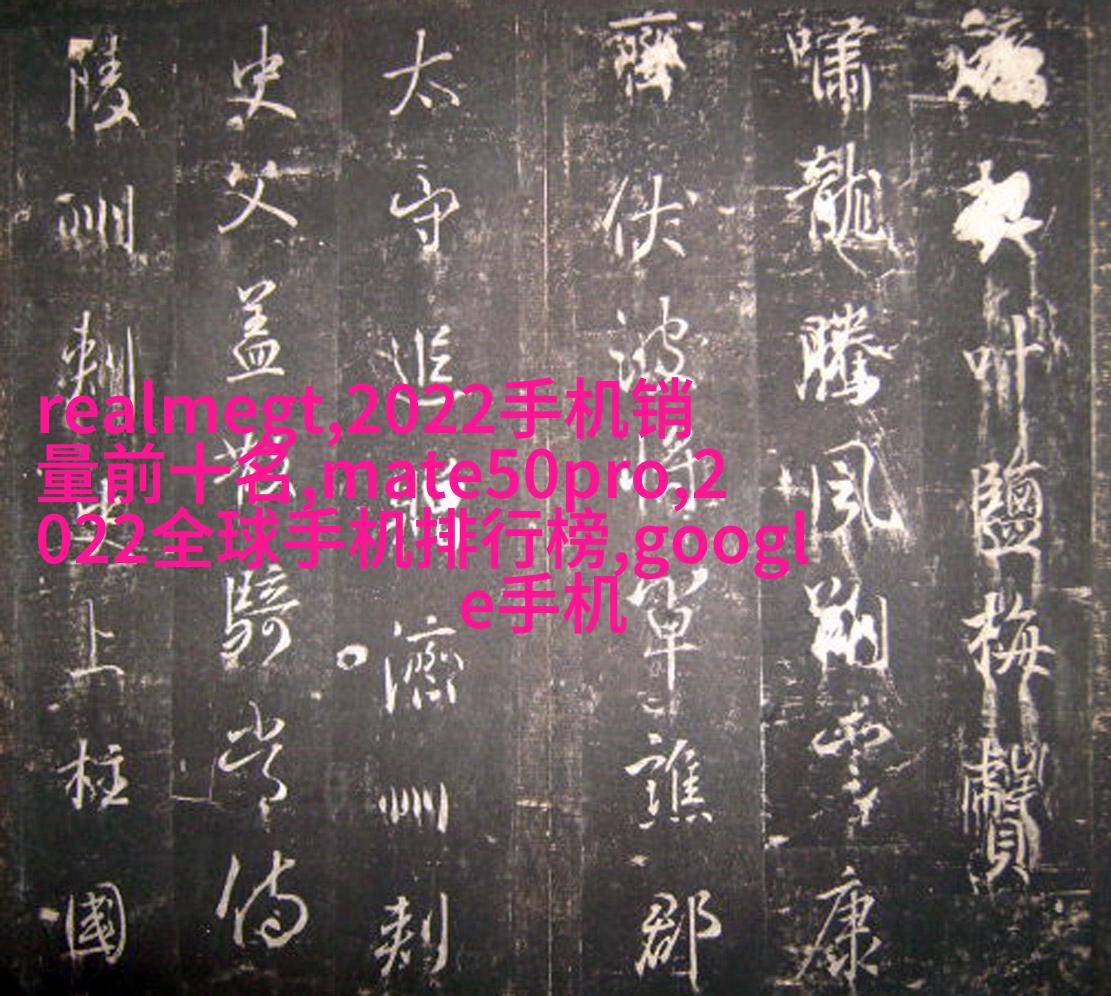 契叶鹽梅
嘯龍騰風翔雲康
齊伏波將軍譙郡
太守追濟州刺
史父蓋散騎常侍
陵州刺史上柱國
realmegt,2022手机销
量前十名,mate50pro,2
022全球手机排行榜,googl
e手机